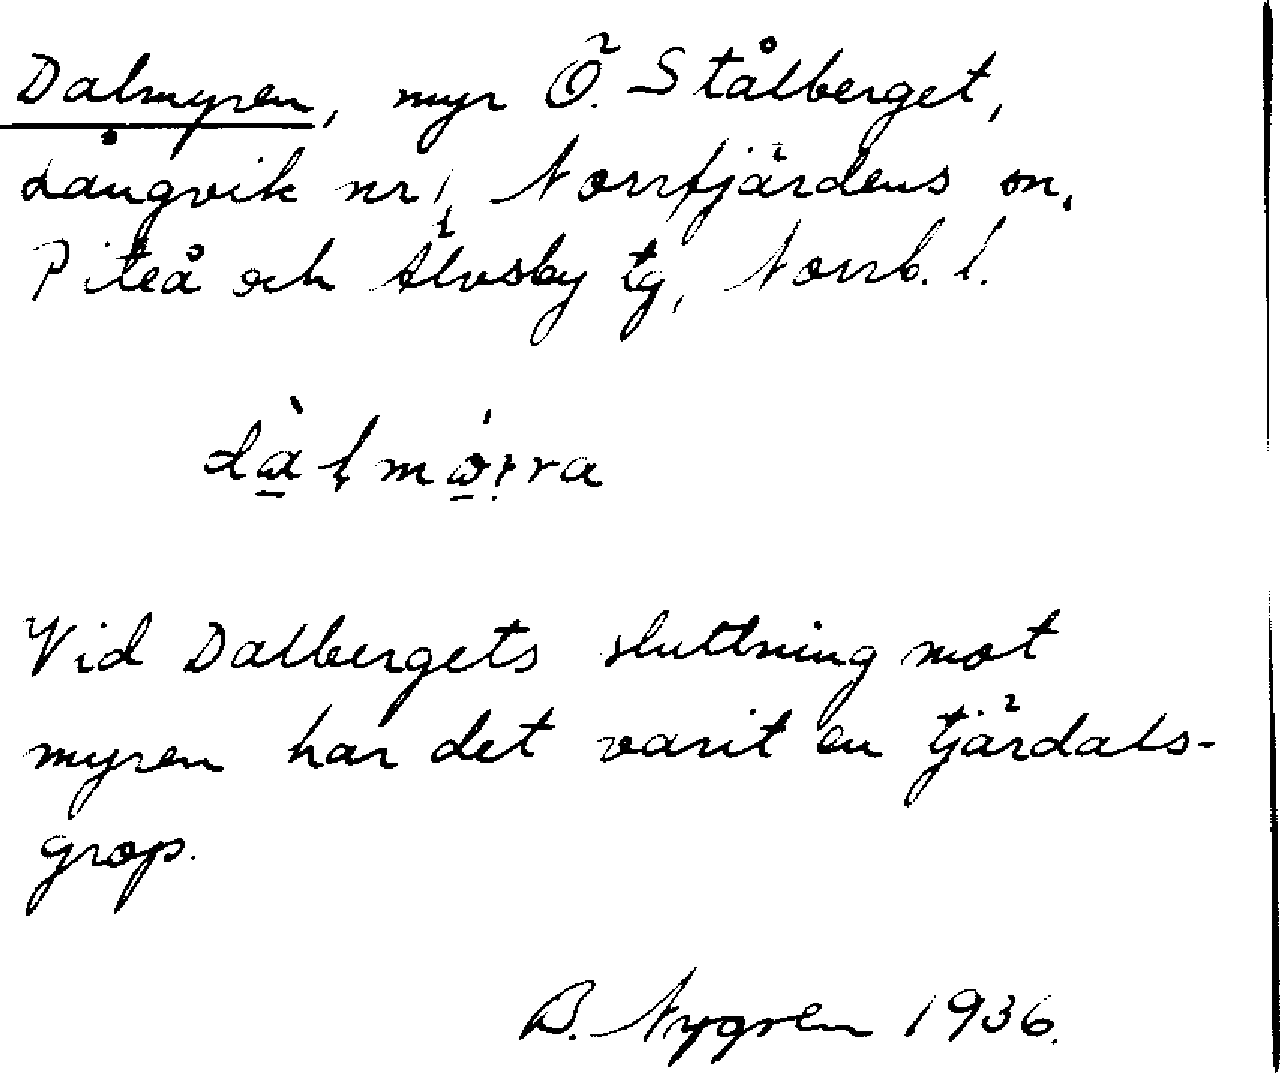 Dalmyren, myr Ö. Stålberget,
Långvik nr 1, Norrfjärdens sn,
Piteå och Älvsby tg, Norrb. l.
dàlmörra
Vid Dalbergets sluttning mot
myren har det varit en tjärdals-
grop.
B. Nygren 1936.